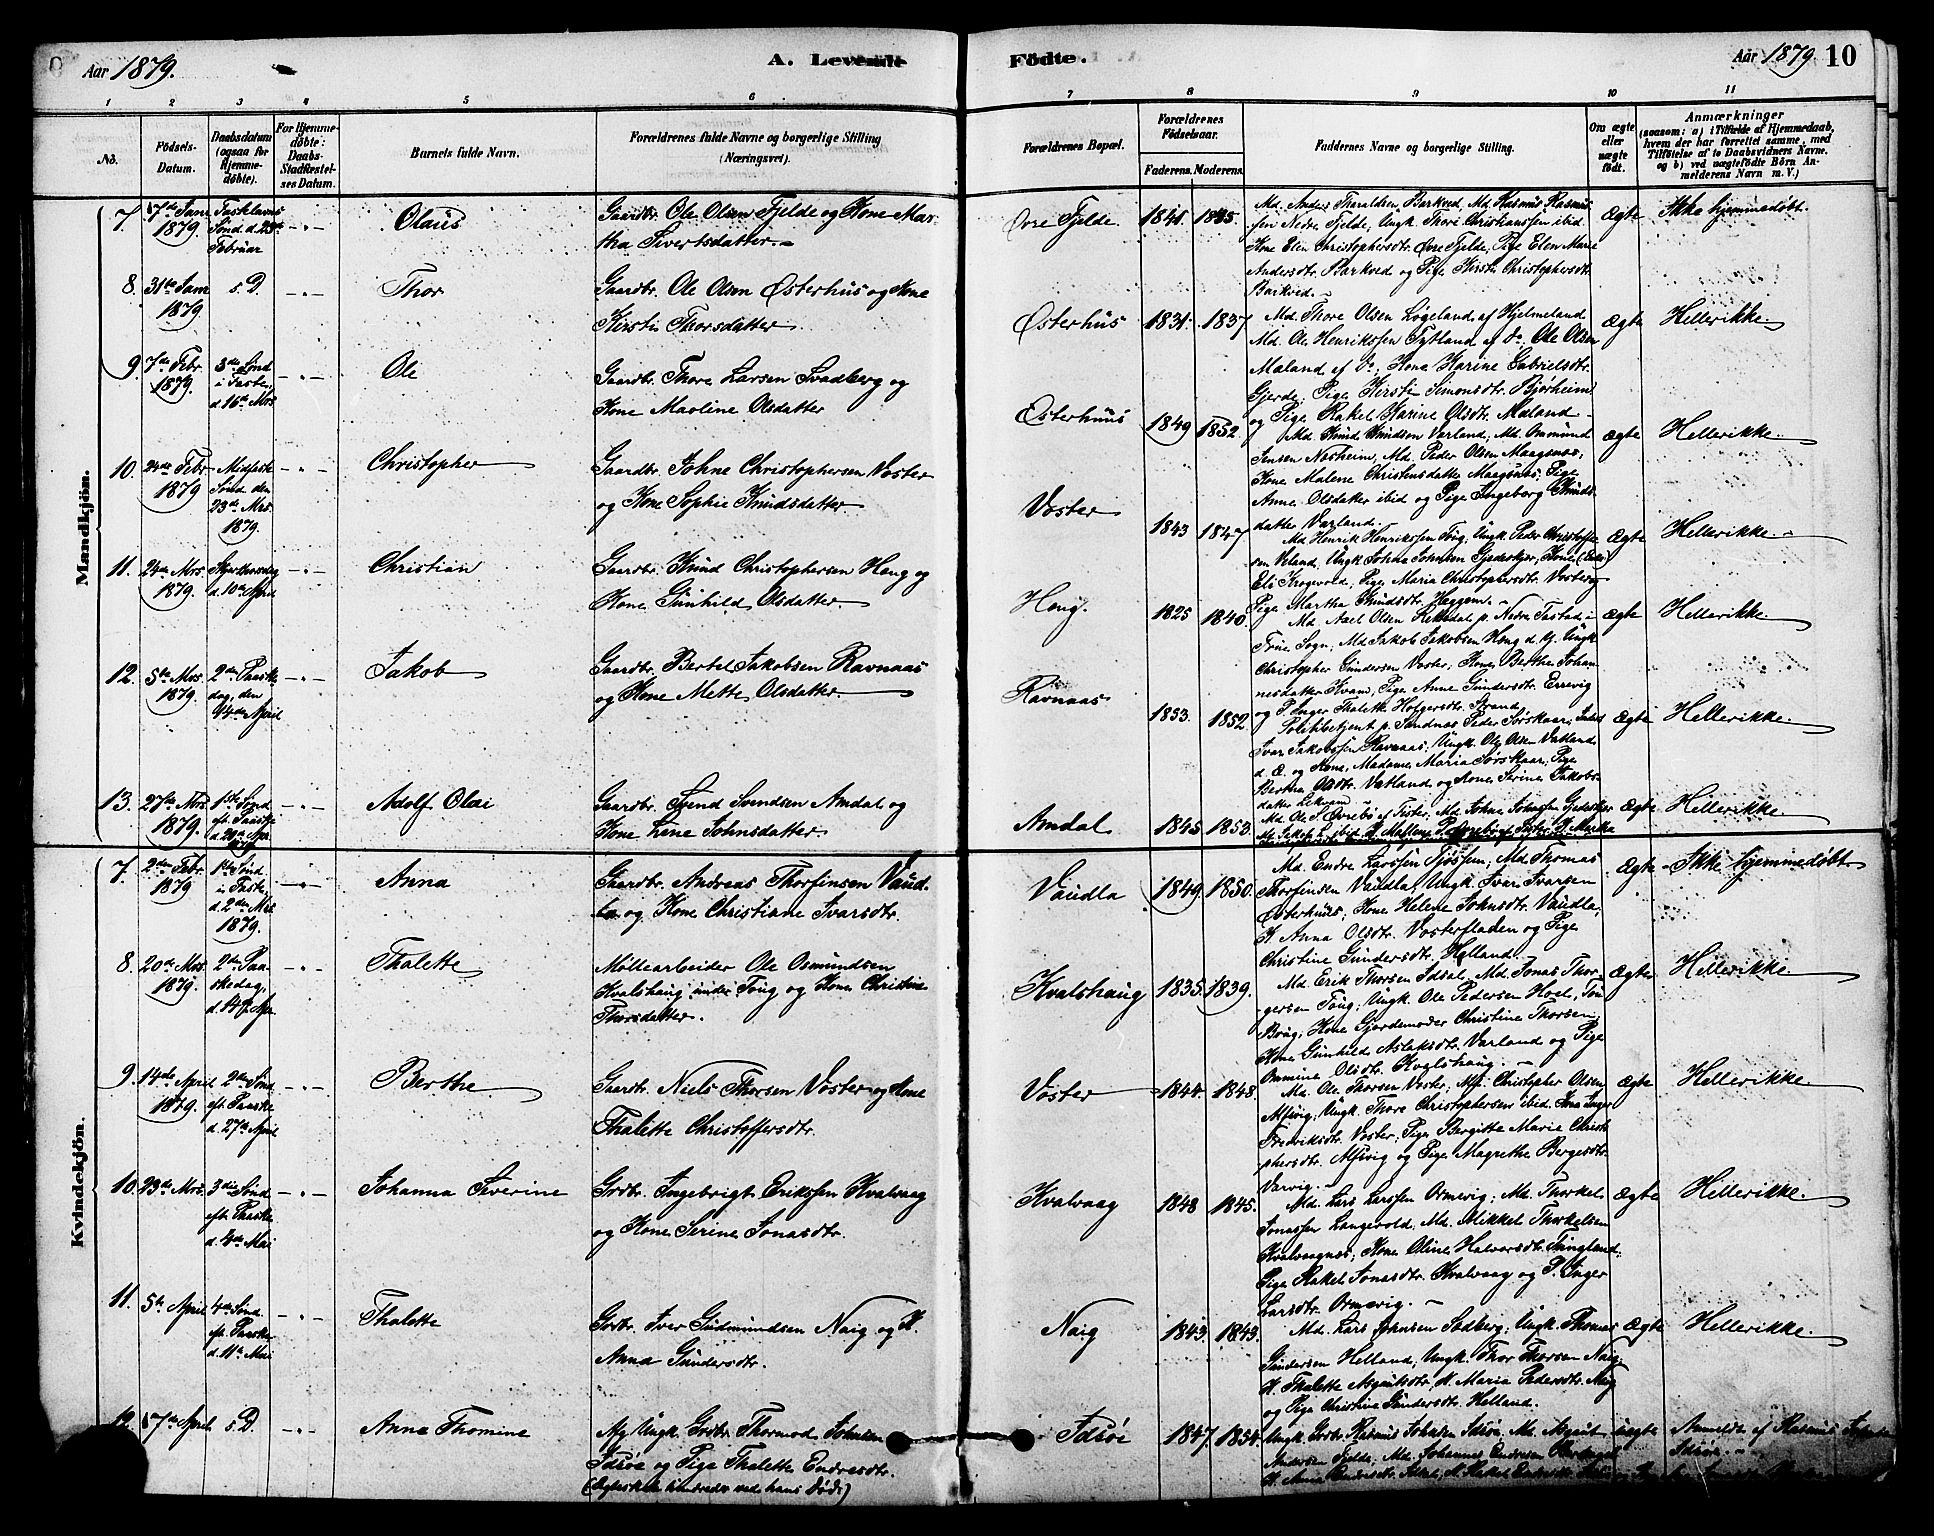 Aar 1879.
A. Levende
Födte.
Aar 1879
10
1 2 3 4 5 6 7 8 9 10 11
No.
Födsels-
Datum.
Daabsdatum
(ogsaa for
Hjemme-
döbte).
For Hjemme-
döbte:
Daabs-
Stadfæstel-
ses Datum.
Barnets fulde Navn.
Forældrenes fulde Navne og borgerlige Stilling
(Næringsvei).
Forældrenes Bopæl.
Forældrenes
Födselsaar.
Faderens. Moderens.
Faddernes Navne og borgerlige Stilling.
Om ægte
eller
uægte
födt.
Anmærkninger
(saasom: a) i Tilfælde af Hjemmedaab,
hvem der har forrettet samme, med
Tilföielse af to Daabsvidners Navne,
og b) ved uægtefödte Börn An-
melderens Navn m. V.)
Mandkjön.
7.
1879.
Februar
Olaus
Gaardbr. Ole Olsen Fjelde og Kone Mar-
tha Sivertsdatter.
Øvre Fjelde
1841 1845
Md. Anders Tharaldsen Barkved, Md. Rasmus Rasmus-
sen Nedre Fjelde, Ungk. Thore Christianssen ibid.
Kone Elen Christophersdtr. Øvre Fjelde, Pige Elen Marie
Andersdtr. Barkved og Pige Kirsti Christophersdtr.
Barkved.
Ægte
Ikke hjemmedøbt.
8. 31te Janr
1879
s. D.
Thor
Gaardbr. Ole Olsen Østerhus og Kone
Kirsti Thorsdatter.
Østerhus
1831. 1837
Md. Thore Olsen Løgeland af Hjelmeland
Md. Ole Henrikssen Tytland af do, Ole Olsen
Maland af do; Kone Karine Gabrielsdtr.
Gjerde; Pige Kirsti Simonsdtr. Bjørheim
og Pige Rakel Karine Olsdtr. Maland
Ægte
Hellerikke.
9. 7de Febr
1879
3die Sønd
i Faste,
d. 16de Mrs
Ole
Gaardbr. Thore Larsen Svadberg og
Kone Maoline Olsdatter
Østerhuus
1849 1852
Md. Knud Knudsen Varland; Md. Ommund
Jensen Næsheim, Md. Peder Olsen Maagenæs;
Kone Malene Christensdatter Maagenæs; Pige
Anne Olsdatter ibid og Pige Ingeborg Knuds-
datter Varland.
Ægte
Hellerikke.
10. 24de Febr
1879
Midfaste
Sønd. den
23de Mrs
1879.
Christopher
Gaardbr. Johne Christophersen Voster
og Kone Sophie Knudsdatter
Voster
1843 1847
Md. Henrik Henrikssen Foug; Ungk. Peder Christoffer-
sen Veland, Ungk. Johne Johnsen Gjedeskjær, Kone
Eli Krogevold, Pige Maria Christophersdtr. Voster og
Pige Martha Knudsdtr. Heggem.
Ægte
Hellerikke.
11. 24de Mrs
1879.
Skjærthorsdag
d. 10de April
Christian
Gaardbr. Knud Christophersen Haug og
Kone Gunhild Olsdatter.
Haug.
1825 1840.
Md. Axel Olsen Rettedal p. Nedre Tastad i
Frue Sogn, Md. Jakob Jakobsen Haug d. kj. Ungk
Christopher Gundersen Voster; Kone Berthe Johan-
nesdatter Kvam, Pige Anne Gundersdtr. Errevig
og P. Inger Thalette Holgersdtr. Strand.
Ægte
Hellerikke.
12. 5te Mrs.
1879.
2den Paaske
dag, den
14de April
Jakob
Gaardbr. Bertel Jakobsen Ravnaas
og Kone Mette Olsdatter.
Ravnaas
1853. 1852.
Politibetjent p. Sandnæs Peder Sørskaar;
Ivar Jakobssen Ravnaas, Ungk. Ole Olsen Vatland
d. Æ. og Kone, Madame Maria Sørskaar, Pige
Bertha Olsdtr. Vatland og Kone Serine Jakobs-
datter
Ægte
Hellerikke.
13. 27de Mrs
1879.
1ste Sønd
eft. Paaske
d. 20de Apr.
Adolf Olai
Gaardbr. Svend Svendsen Amdal og
Kone Lene Johnsdatter.
Amdal
1845 1853.
Ægte
Hellerikke.
Kvindekjön.
7. 2den Febr.
1879
1ste Sønd
i Faste,
d. 2den Mrs
1879.
Anna
Gaardbr. Andreas Thorfinsen Vaud-
la og Kone Christiane Ivarsdtr.
Vaudla
1849. 1850.
Md. Endre Larssen Tjøssem; Md. Thomas
Thorfinsen Vaudla, Ungk. Ivar Ivarsen
Østerhuus; Kone Helene Johnsdtr. Vaudla,
K. Anna Olsdtr. Vosterfladen og Pige
Christine Gundersdtr. Helland.
Ægte
Ikke hjemmedøbt
8. 20de Mrs.
1879.
2den Paa-
skedag,
d. 14de Apr.
Thalette
Møllearbeider Ole Osmundsen
Kvalshaug under Foug og Kone Christine
Thorsdatter.
Kvalshaug
1835. 1839.
Md. Erik Thorsen Idsal, Md. Jonas Thor-
gersen Foug. Ungk. Ole Pedersen Hoel,
Kone Gjordemoder Christine Thorsen
Kone Gunhild Aslaksdtr. Varland og Pige
Ommine Olsdtr. Kvalshaug.
Ægte
Hellerikke.
9. 14de April
1879.
2den Sønd.
eft. Paaske
d. 27de April
Berthe
Gaardbr. Niels Thorsen Voster og Kone
Thalette Christoffersdtr.
Voster
1844. 1848.
Md. Ole Thorsen Voster, Md. Christopher Olsen
Alsvig, Ungk. Thore Christophersen ibid. Kone Inger
Fredriksdtr. Voster, Pige Bergitte Marie Christo-
phersdtr. Alsvig og Pige Magrethe Bergesdtr.
Varvig.
Ægte
Hellerikke.
10. 23de Mrs.
3die Sønd.
eft. Paaske
d. 4de Mai
Johanna Severine
Grdbr. Ingebrigt Erikssen Kvalvaag
og Kone Serine Jonasdtr.
Kvalvaag
1848 1845.
Md. Lars Larssen Ormevig; Md. Thorkel
Jonassen Langevold, Md. Mikkel Thorkelsen
Kvalvaagnæs; Kone Oline Halvorsdtr. Tungland;
Pige Rakel Jonasdtr. Kvalvaag og P. Inger
Larsdtr. Ormevig.
Ægte
Hellerikke.
11. 5te April
4de Sønd.
eft. Paaske
d. 11te Mai
Thalette
Grdbr. Iver Gudmundsen Naig og K.
Anna Gundersdtr.
Naig
1843. 1843.
Md. Lars Johnsen Sodberg; Ungk. Thomas
Gundersen Helland, Ungk. Thor Thorsen Naig;
K. Thalette Asgautsdtr., K. Maria Pedersdtr. Naig
og Pige Christine Gundersdtr. Helland.
Ægte
Hellerikke.
12. 17de April
s. D.
Anne Thomine
Af Ungk. Grdbr. Thormod Johnsen
Idsøe og Pige Thalette Endresdtr.
(Ægteskab hindredes ved hans Død.)
Idsøe
1847. 1854.
Ungk. Grdbr. Rasmus Johnsen Idsøe, Md. Asgaut
Andersen Fjelde, Md. Johannes Endresen
uægte
Anmeldt af Rasmus
Idsøe.